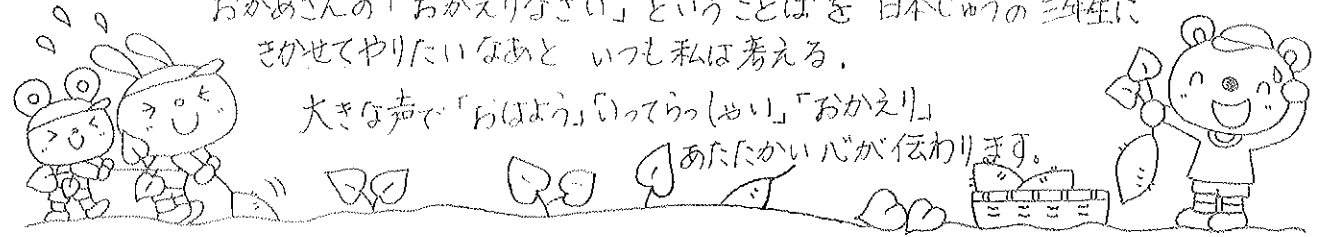 おかあさんの「おかえりなさい」ということばを 日本じゅうの三年生に
きかせてやりたいなあと いつも私は考える.
大きな声で「おはよう」「いってらっしゃい」「おかえり」
あたたかい心が伝わります。